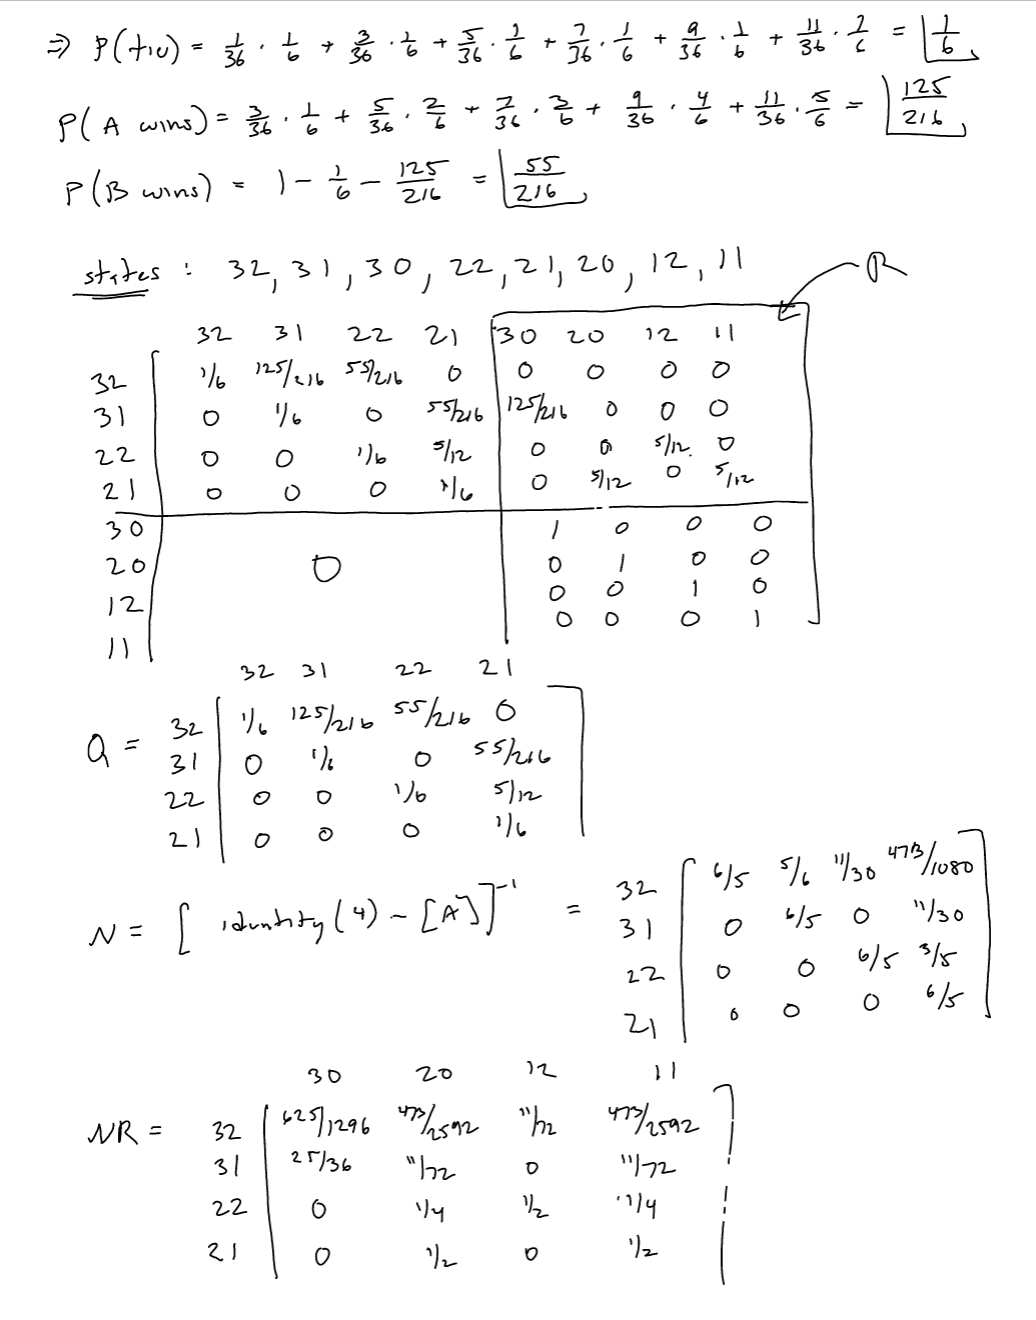 ⇒ P(tie) = 1/36 · 1/6 + 3/36 · 1/6 + 5/36 · 1/6 + 7/36 · 1/6 + 9/36 · 1/6 + 11/36 · 1/6 = 1/6
P(A wins) = 3/36 · 1/6 + 5/36 · 2/6 + 7/36 · 3/6 + 9/36 · 4/6 + 11/36 · 5/6 = 125/216
P(B wins) = 1 - 1/6 - 125/216 = 55/216
states : 32, 31, 30, 22, 21, 20, 12, 11
R
32 31 22 21 30 20 12 11
32 1/6 125/216 55/216 0 0 0 0 0
31 0 1/6 0 55/216 125/216 0 0 0
22 0 0 1/6 5/12 0 0 5/12 0
21 0 0 0 1/6 0 5/12 0 5/12
30 1 0 0 0
20 0 0 1 0 0
12 0 0 1 0
11 0 0 0 1
32 31 22 21
Q = 32 1/6 125/216 55/216 0
31 0 1/6 0 55/216
22 0 0 1/6 5/12
21 0 0 0 1/6
N = [ identity(4) - [A] ]^-1 = 32 6/5 5/6 11/30 473/1080
31 0 6/5 0 11/30
22 0 0 6/5 3/5
21 0 0 0 6/5
30 20 12 11
NR = 32 625/1296 473/2592 11/72 473/2592
31 25/36 11/72 0 11/72
22 0 1/4 1/2 1/4
21 0 1/2 0 1/2